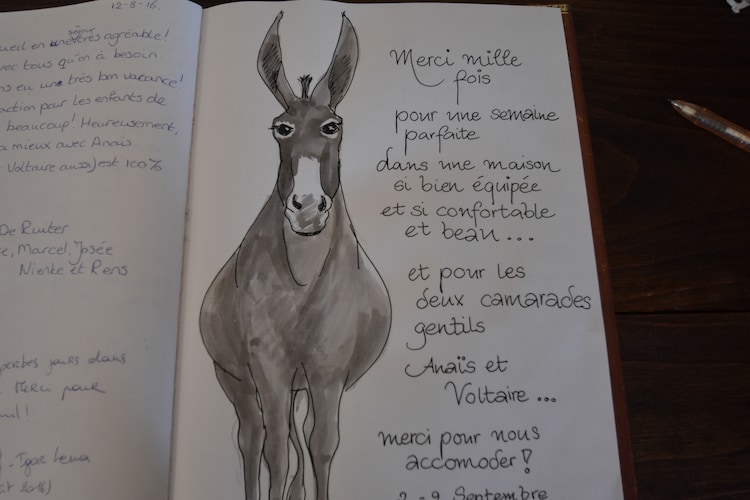 12-8-16.
séjour
ueil en très agréable!
vec tous qu'on à besoin
ns eu une très bon vacance!
action pour les enfants de
beaucoup! Heureusement,
a mieux avec Anaïs
Voltaire aussi) est 100%
De Ruuter
e, Marcel, Josée
Nienke et Rens
perbes jours dans
Merci pour
- Igor Lena
2016)
Merci mille
fois
pour une semaine
parfaite
dans une maison
si bien équipée
et si confortable
et beau...
et pour les
deux camarades
gentils
Anaïs et
Voltaire...
merci pour nous
accomoder!
2-9 Septembre